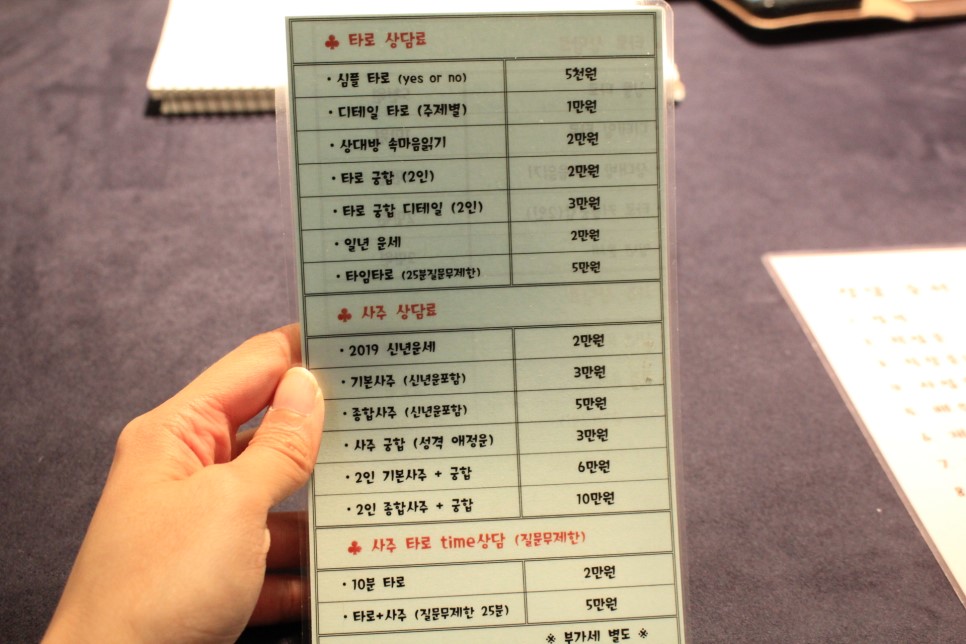 ♣ 타로 상담료
· 심플 타로 (yes or no) 5천원
· 디테일 타로 (주제별) 1만원
· 상대방 속마음읽기 2만원
· 타로 궁합 (2인) 2만원
· 타로 궁합 디테일 (2인) 3만원
· 일년 운세 2만원
· 타임타로 (25분질문무제한) 5만원
♣ 사주 상담료
· 2019 신년운세 2만원
· 기본사주 (신년운포함) 3만원
· 종합사주 (신년운포함) 5만원
· 사주 궁합 (성격 애정운) 3만원
· 2인 기본사주 + 궁합 6만원
· 2인 종합사주 + 궁합 10만원
♣ 사주 타로 time상담 (질문무제한)
· 10분 타로 2만원
· 타로+사주 (질문무제한 25분) 5만원
※ 부가세 별도 ※